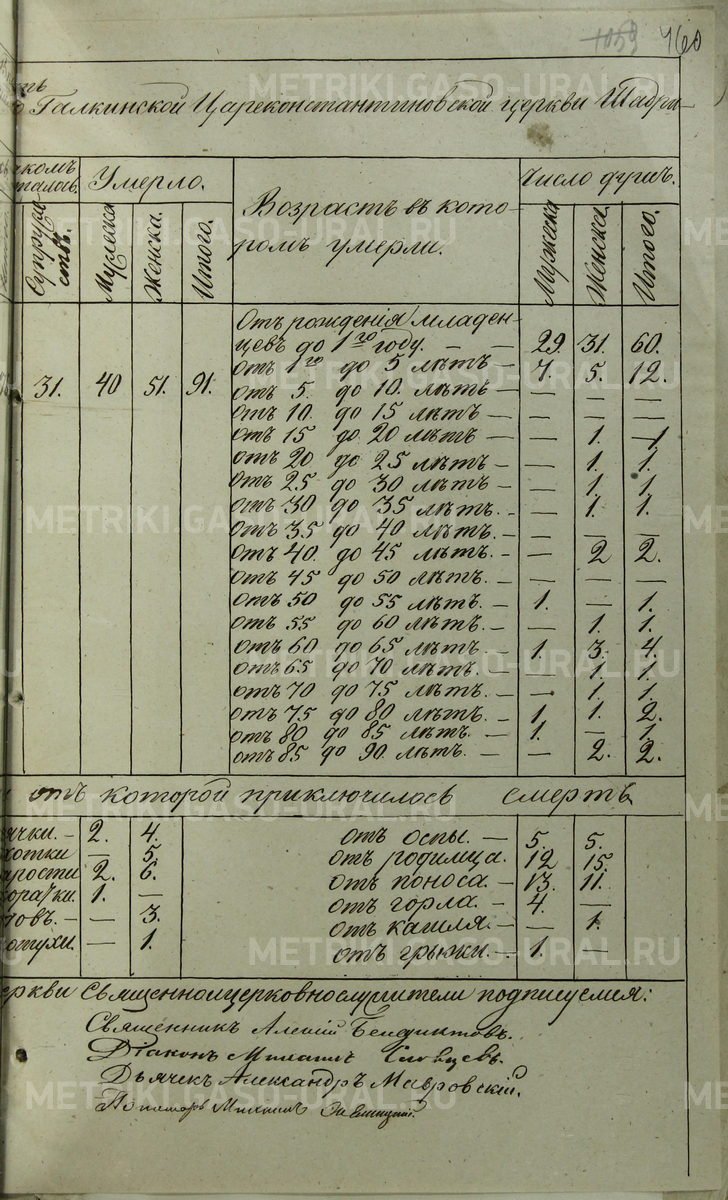 1059 460
Галкинской Цареконстантиновской церкви Шадри-
Умерло. Возрастъ въ кото- Число душъ.
Супруже
ствъ. Мужеска Женска. Итого. ромъ умерли. Мужеска Женска. Итого.
Отъ рожденія младен-
цевъ до 1го году. — — 29. 31. 60.
отъ 1го до 5 лѣтъ — 7. 5. 12.
31. 40 51. 91. отъ 5. до 10. лѣтъ — — — —
отъ 10. до 15 лѣтъ — — — —
отъ 15 до 20 лѣтъ — — 1. — 1
отъ 20 до 25 лѣтъ — — 1. 1.
отъ 25 до 30 лѣтъ — — 1. 1
отъ 30 до 35 лѣтъ. — — 1. 1.
отъ 35 до 40 лѣтъ. — — — —
отъ 40. до 45 лѣтъ. — — 2 2.
отъ 45 до 50 лѣтъ. — — — —
отъ 50 до 55 лѣтъ. — 1. — 1.
отъ 55 до 60 лѣтъ. — — 1. 1.
отъ 60 до 65 лѣтъ. — 1. 3. 4.
отъ 65 до 70 лѣтъ. — — 1. 1.
отъ 70 до 75 лѣтъ. — — 1. 1.
отъ 75 до 80 лѣтъ. — 1. 1. 2.
отъ 80 до 85 лѣтъ. — 1. — 1.
отъ 85 до 90. лѣтъ. — — 2. 2.
отъ которой приключилось смерть
ячки. — 2. 4. отъ оспы. — 5. 5.
хотки — 5. отъ родимца. 12 15.
арости 2. 6. отъ поноса. — 13. 11.
орячки. 1. — отъ горла. — 4. —
— 3. отъ кашля. — — 1.
— 1. отъ грыжи. — 1. —
еркви Священноицерковнослужители подписуемся:
Священникъ Алексій Бенедиктовъ.
Діаконъ
Дьячекъ Александръ Мавровскій.
Пономарь
METRIKI.GASO-URAL.RU